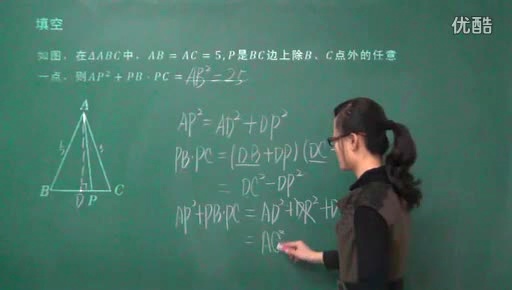 优酷
填空
如图，在△ABC中，AB = AC = 5, P是BC边上除B、C点外的任意
一点，则AP² + PB · PC = AB² = 25
A
B
D
P
C
5
AP² = AD² + DP²
PB·PC = (DB+DP)(DC-
= DC² - DP²
AP²+PB·PC = AD²+DP²+
= AC²